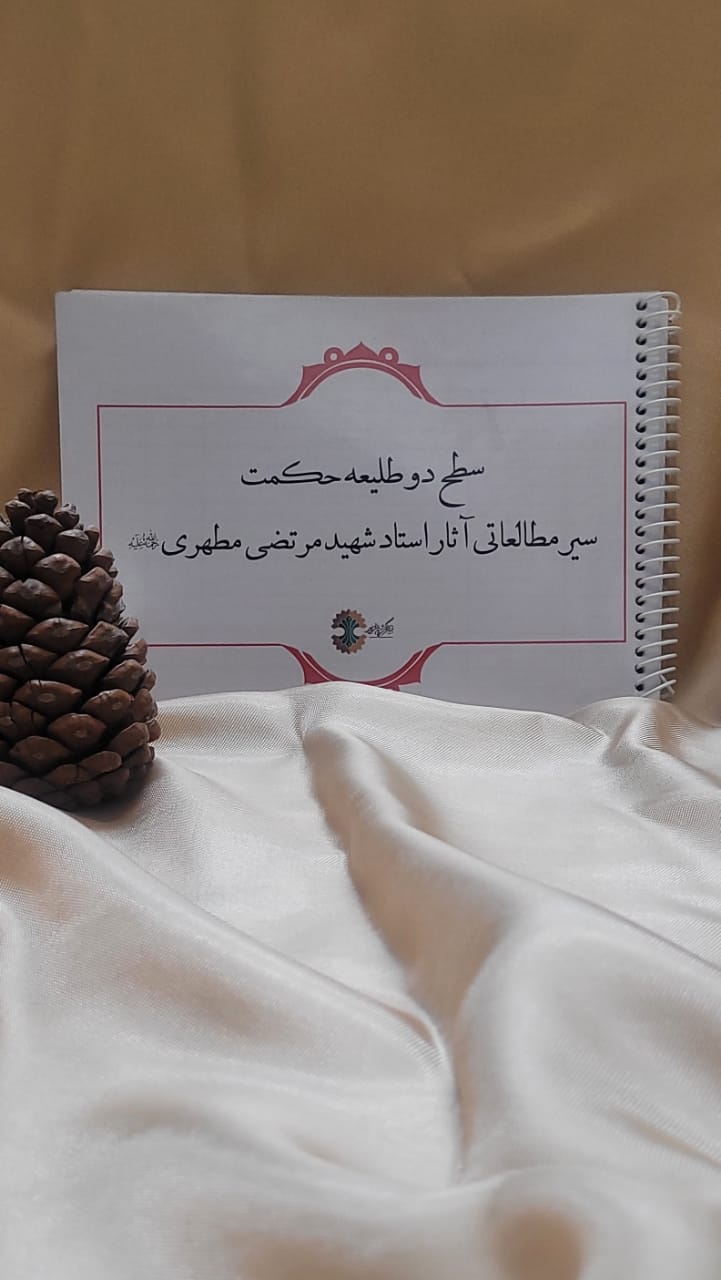 سطح دو طلیعه حکمت
سیر مطالعاتی آثار استاد شهید مرتضی مطهری